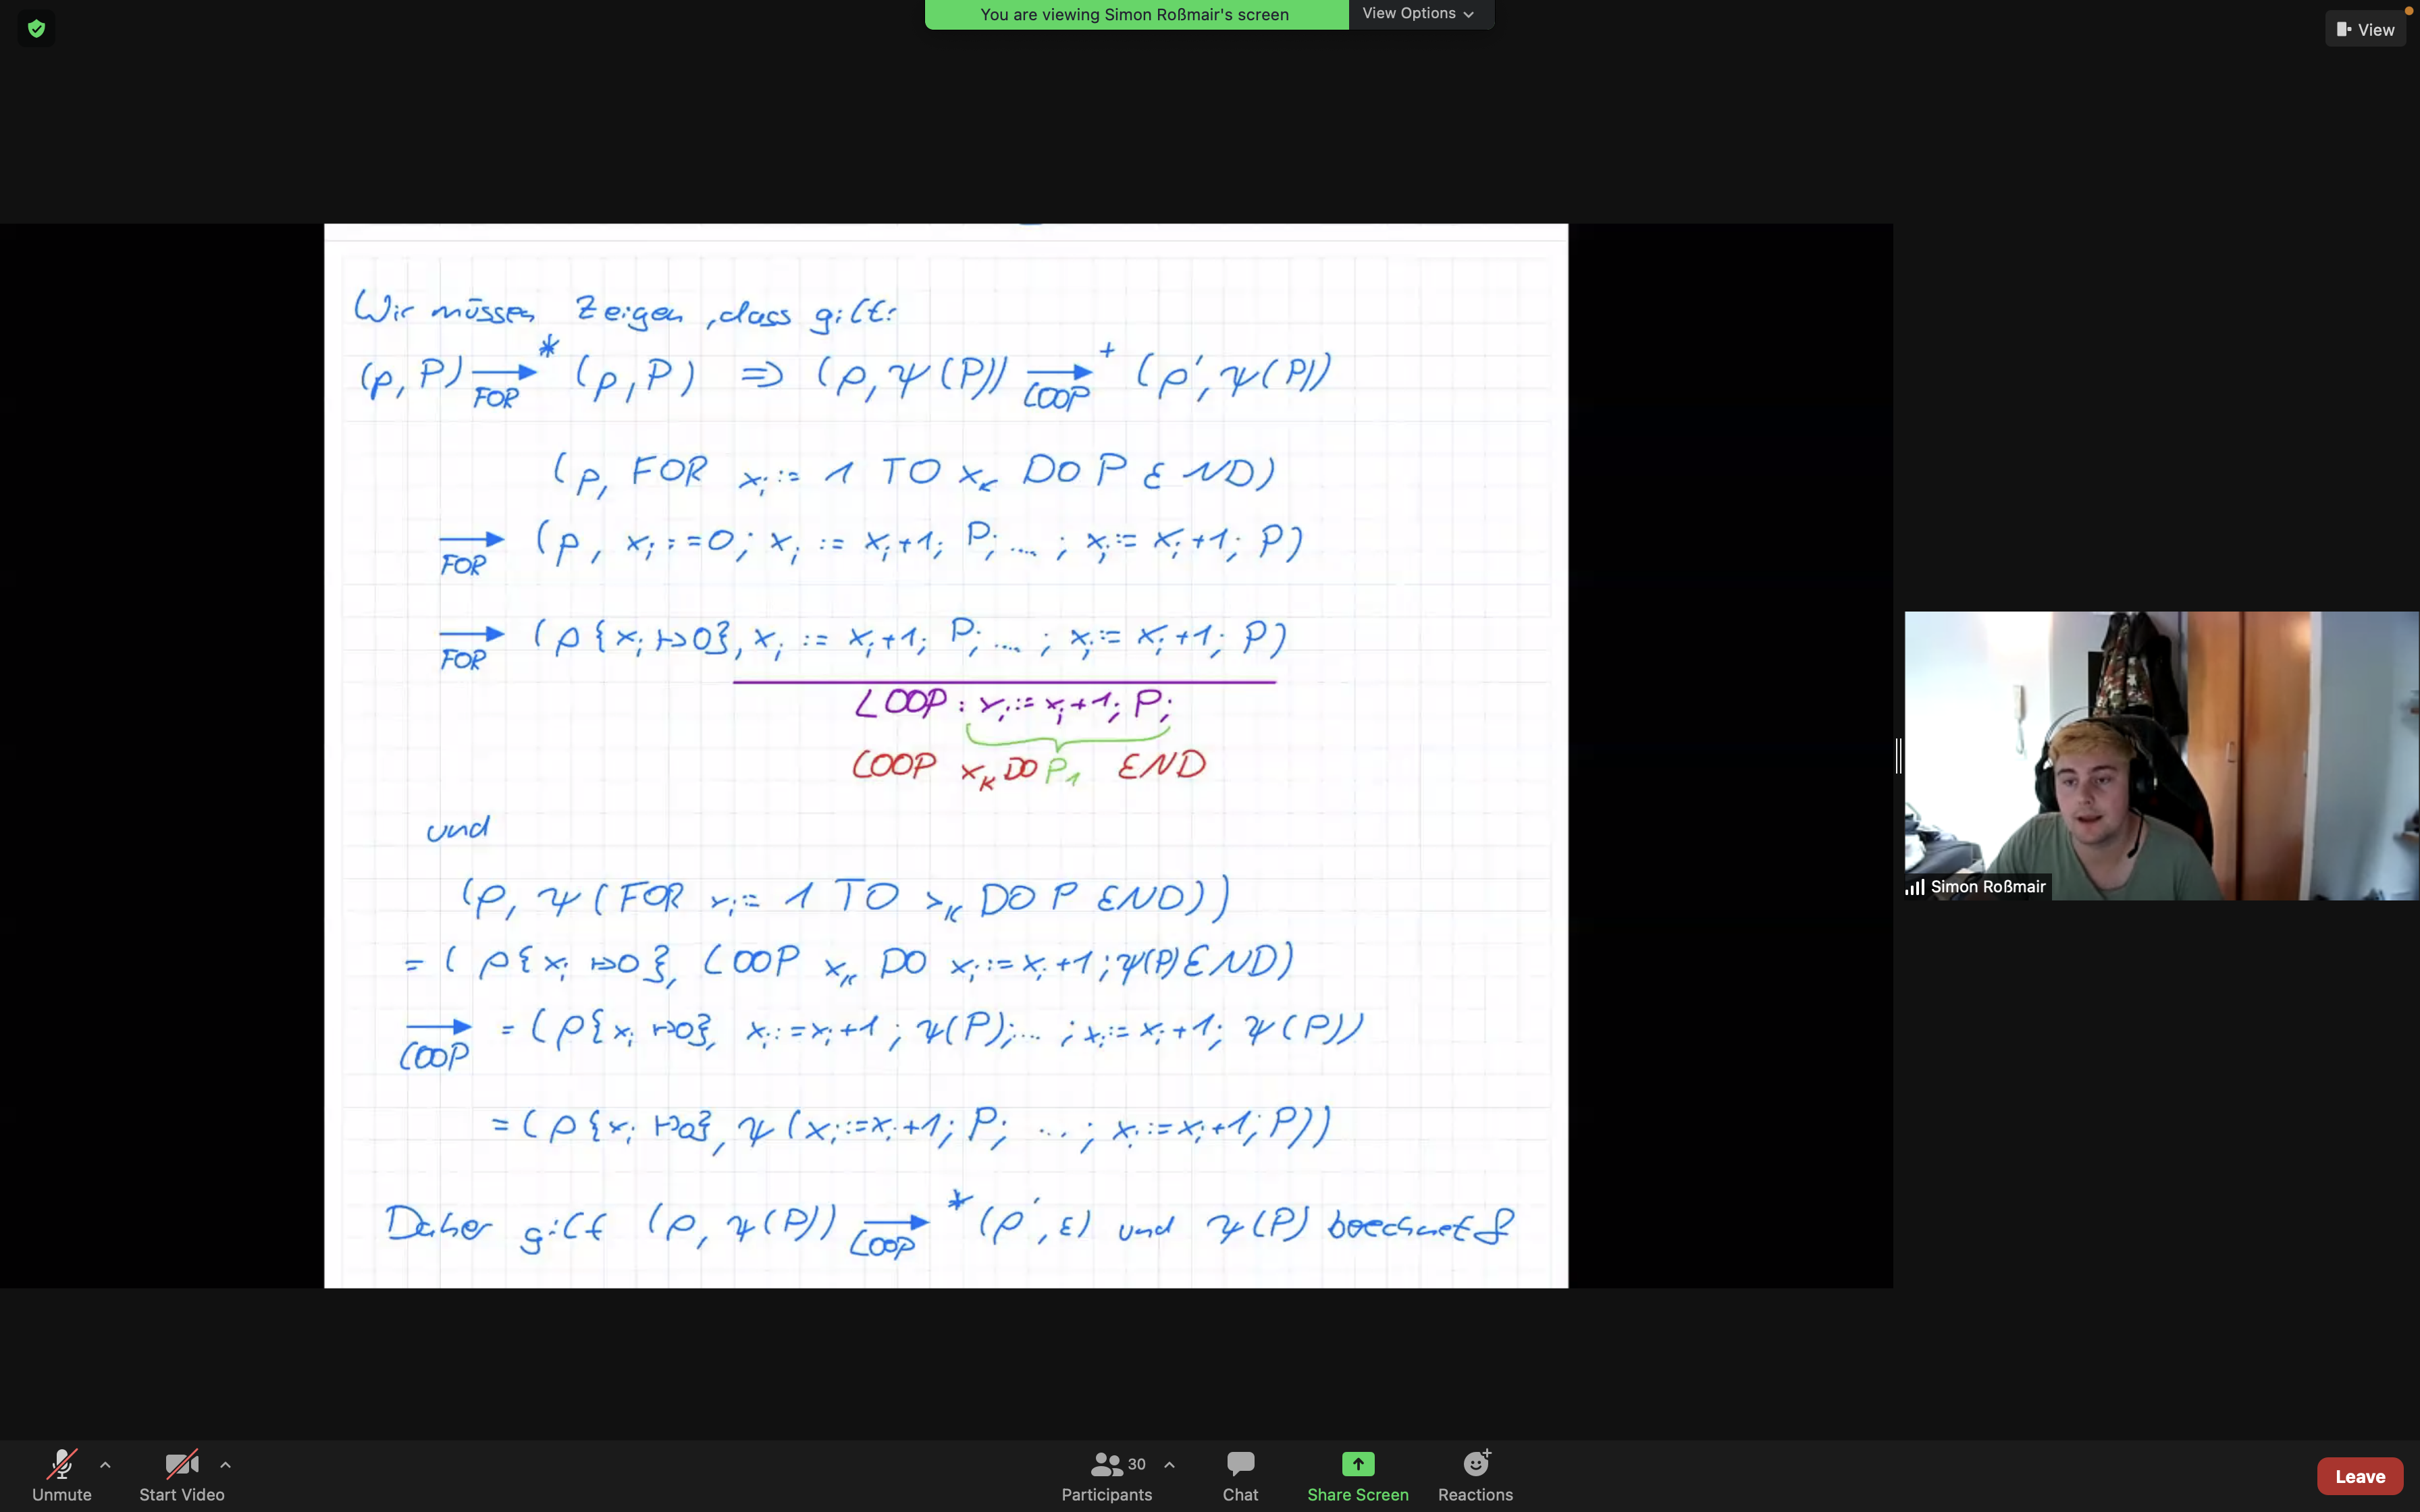 You are viewing Simon Roßmair's screen
View Options
View
Wir müssen Zeigen, dass gilt:
(ρ, P) →* FOR (ρ, P) ⇒ (ρ, ψ(P)) →+ LOOP (ρ', ψ(P))
(ρ, FOR xi := 1 TO xk DO P END)
→ FOR (ρ, xi := 0; xi := xi+1; P; ....; xi := xi+1; P)
→ FOR (ρ{xi ↦ 0}, xi := xi+1; P; ....; xi := xi+1; P)
LOOP: xi := xi+1; P;
LOOP xk DO P1 END
und
(ρ, ψ(FOR xi := 1 TO xk DO P END))
= (ρ{xi ↦ 0}, LOOP xk DO xi := xi+1; ψ(P) END)
→ LOOP = (ρ{xi ↦ 0}, xi := xi+1; ψ(P);...; xi := xi+1; ψ(P))
= (ρ{xi ↦ 0}, ψ(xi := xi+1; P; ...; xi := xi+1; P))
Daher gilt (ρ, ψ(P)) →* LOOP (ρ', ε) und ψ(P) berechnet f
Simon Roßmair
Unmute
Start Video
30
Participants
Chat
Share Screen
Reactions
Leave